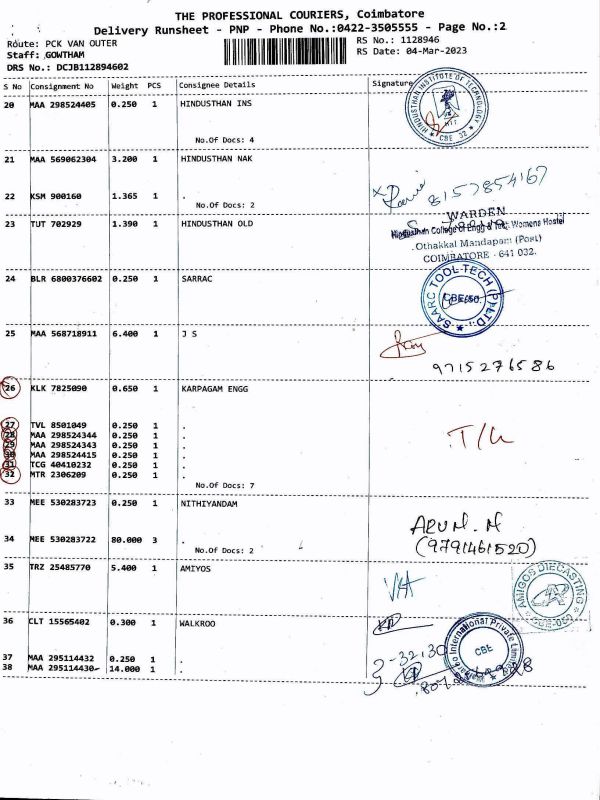 THE PROFESSIONAL COURIERS, Coimbatore
Delivery Runsheet - PNP - Phone No.:0422-3505555 - Page No.:2
Route: PCK VAN OUTER
RS No.: 1128946
Staff: GOWTHAM
RS Date: 04-Mar-2023
DRS No.: DCJB112894602
S No Consignment No Weight PCS Consignee Details Signature
20 MAA 298524405 0.250 1 HINDUSTHAN INS
HINDUSTHAN INSTITUTE OF TECHNOLOGY
HIT
CBE 32
No.Of Docs: 4
21 MAA 569062304 3.200 1 HINDUSTHAN NAK
8157854167
22 KSM 900160 1.365 1 .
No.Of Docs: 2
23 TUT 702929 1.390 1 HINDUSTHAN OLD
WARDEN
Hindusthan College of Engg & Tech Womens Hostel
Othakkal Mandapam (Post)
COIMBATORE - 641 032.
24 BLR 6800376602 0.250 1 SARRAC
SAARC TOOL TECH (P) LTD.
25 MAA 568718911 6.400 1 J S
9715276586
26 KLK 7825090 0.650 1 KARPAGAM ENGG
27 TVL 8501049 0.250 1 .
28 MAA 298524344 0.250 1 .
29 MAA 298524343 0.250 1 .
30 MAA 298524415 0.250 1 .
31 TCG 40410232 0.250 1 .
32 MTR 2306209 0.250 1 .
No.Of Docs: 7
33 MEE 530283723 0.250 1 NITHIYANDAM
ARUN. N
34 MEE 530283722 80.000 3 .
(9791461520)
No.Of Docs: 2
35 TRZ 25485770 5.400 1 AMIYOS
AMIGOS DIECASTING
36 CLT 15565402 0.300 1 WALKROO
International Private Limited
CBE
37 MAA 295114432 0.250 1 .
38 MAA 295114430 14.000 1 .